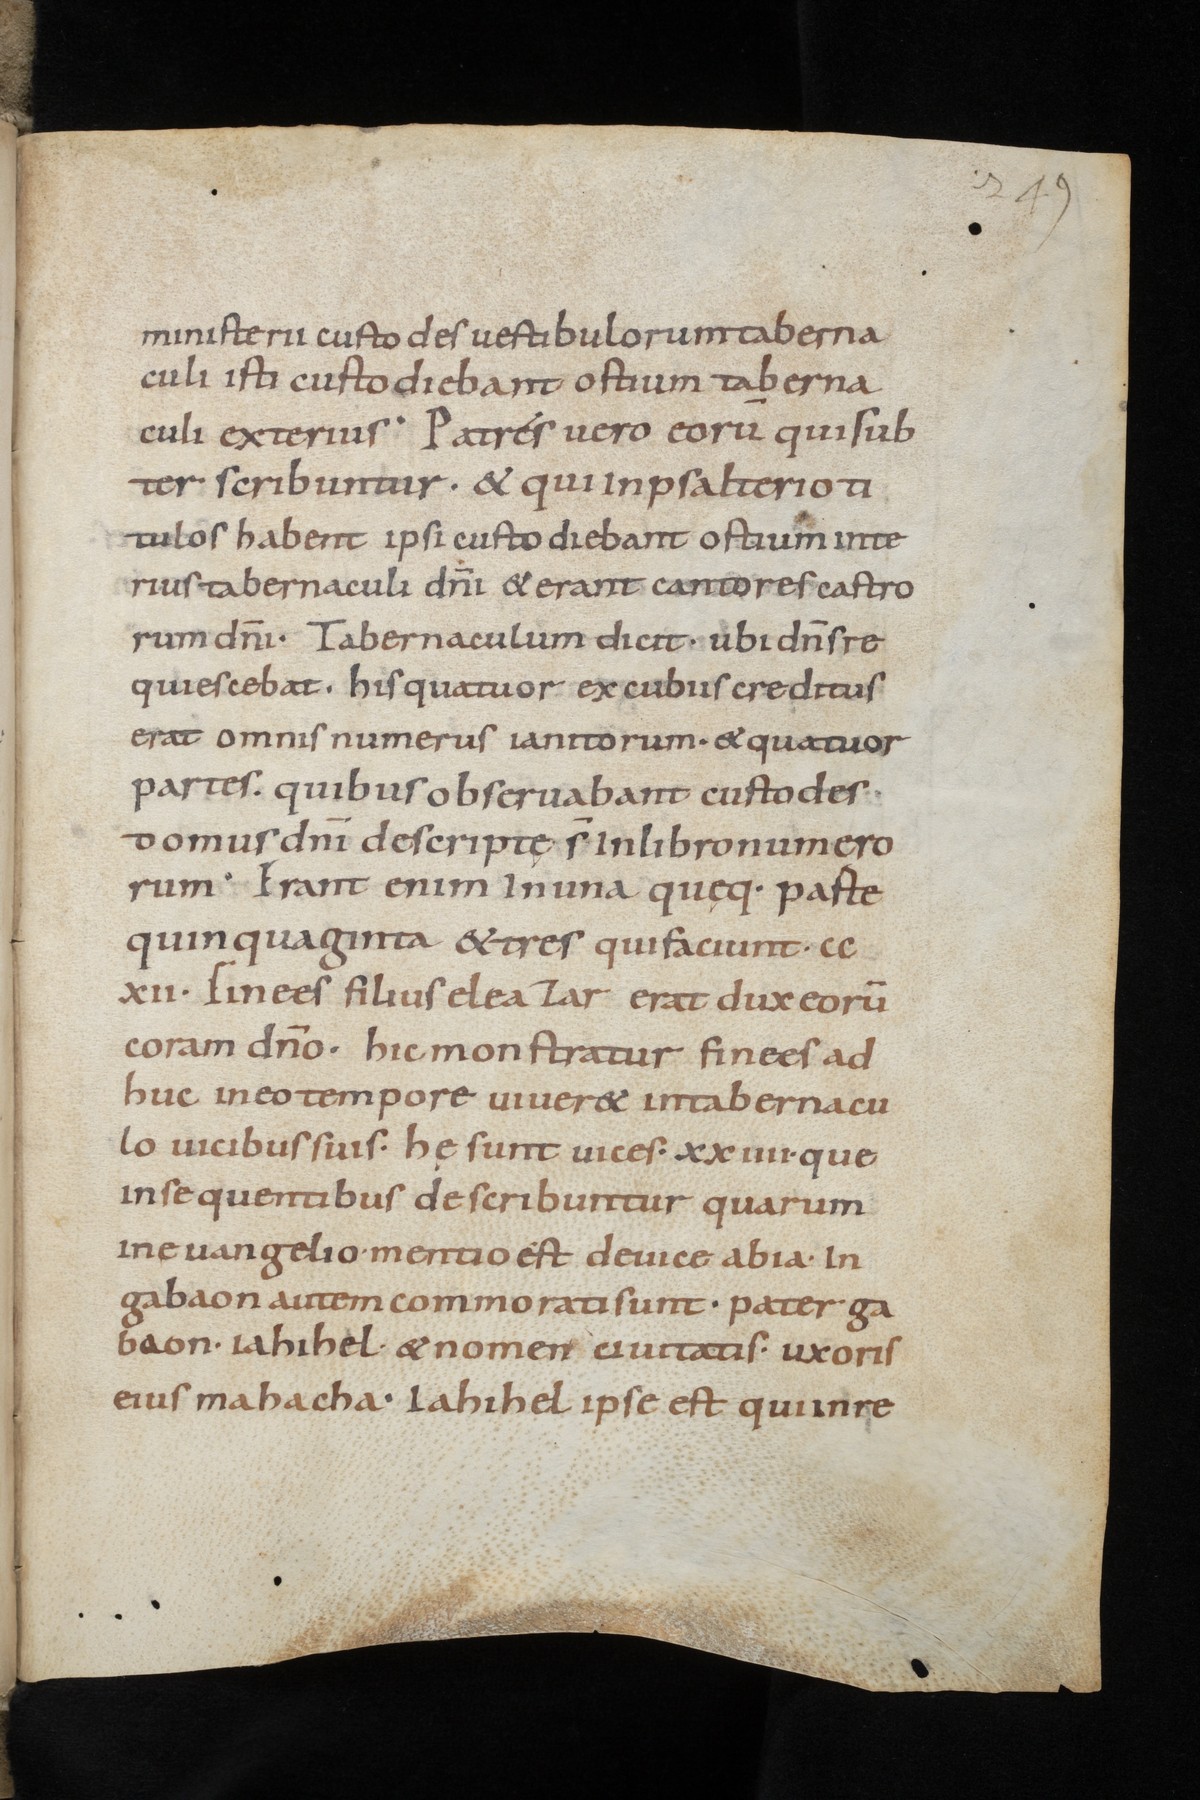 249
ministerii custodes uestibulorum taberna
culi isti custodiebant ostium taberna
culi exterius· Patres uero eorū qui sub
ter scribuntur · & qui in psalterio ti
tulos habent ipsi custodiebant ostium inte
rius tabernaculi dn̄i & erant cantores castro
rum dn̄i · Tabernaculum dicit · ubi dn̄s re
quiescebat · his quatuor excubus creditus
erat omnis numerus ianitorum · & quatuor
partes · quibus obseruabant custodes ·
domus dn̄i descriptę s̄ In libro numero
rum · Erant enim In una quęq · paste
quinquaginta & tres qui faciunt · cc
xii · Finees filius elea Zar erat dux eorū
coram dn̄o · hic monstratur finees ad
huc in eo tempore uiuer& in tabernacu
lo uicibus suis · hę sunt uices · xx iiii · que
in sequentibus describuntur quarum
in euangelio mentio est de uice abia · In
gabaon autem commorati sunt · pater ga
baon · iahihel · & nomen ciuitatis · uxoris
eius mahacha · Iahihel ipse est qui in re